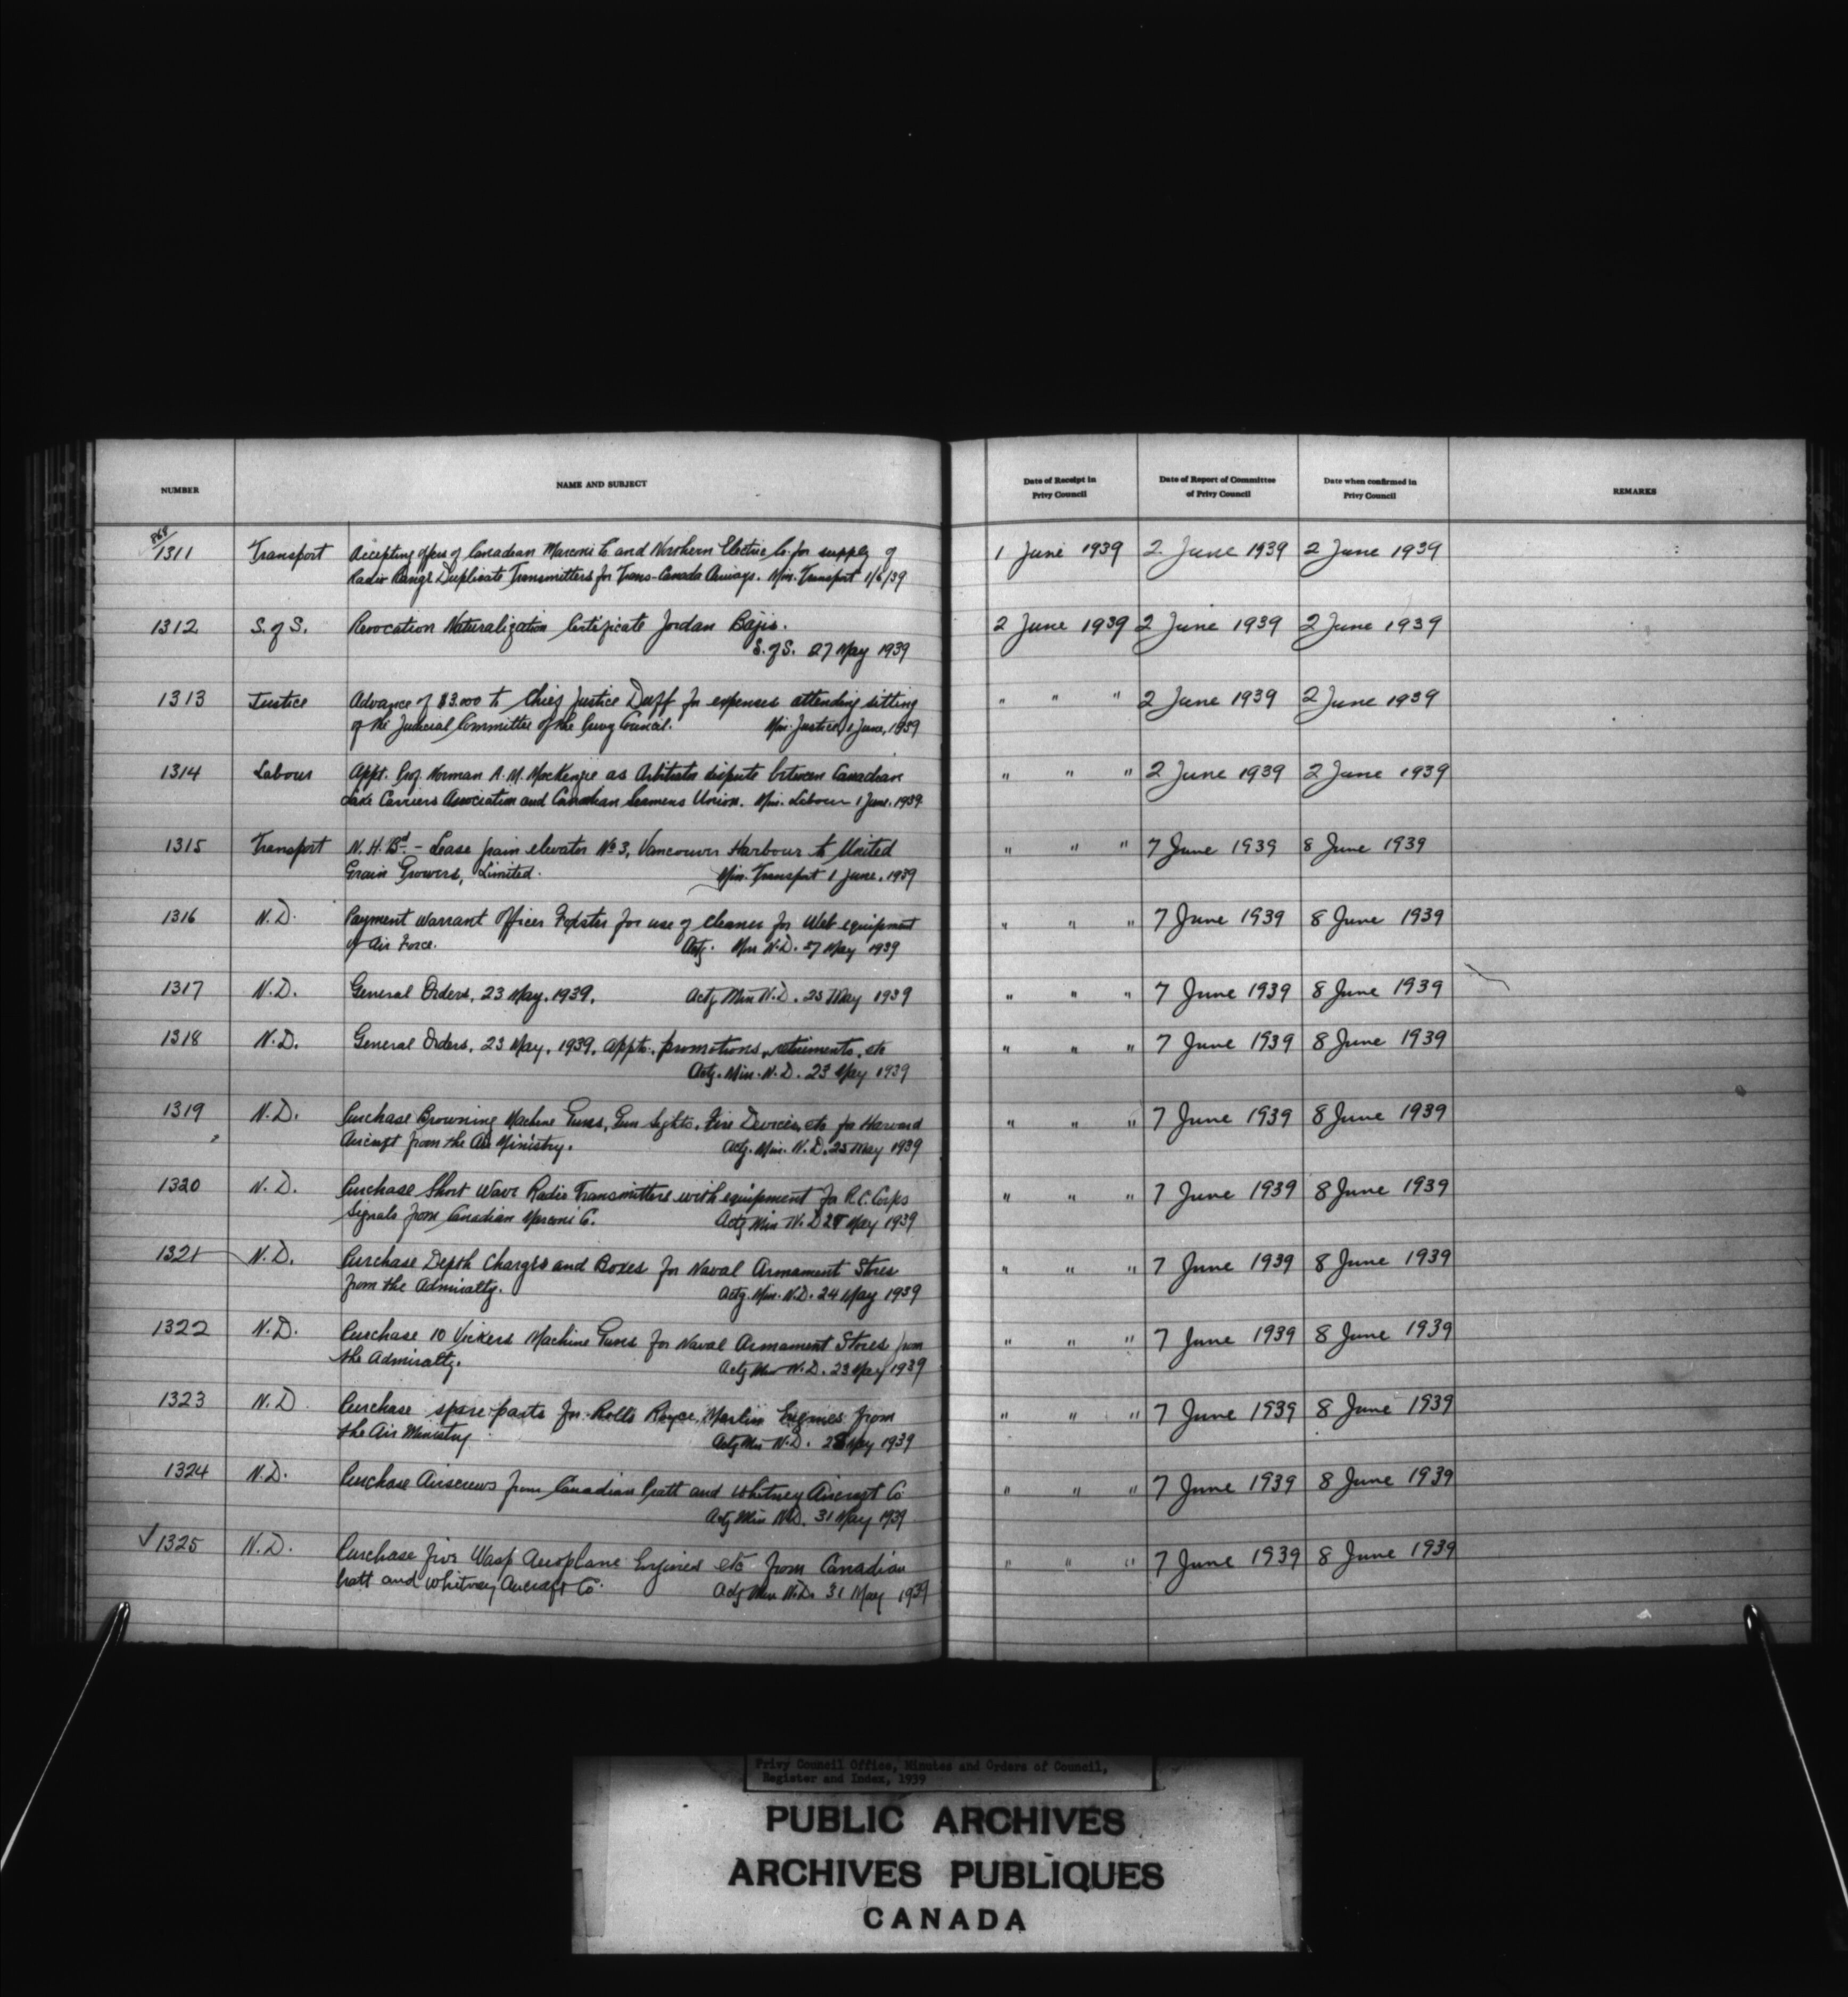 NUMBER NAME AND SUBJECT Date of Receipt in Privy Council Date of Report of Committee of Privy Council Date when confirmed in Privy Council REMARKS
868/
1311 Transport Accepting offers of Canadian Marconi Co. and Northern Electric Co. for supply of 1 June 1939 2 June 1939 2 June 1939
Radio Range Duplicate Transmitters for Trans-Canada Airways. Min. Transport 1/6/39
1312 S. of S. Revocation Naturalization Certificate Jordan Bajis. 2 June 1939 2 June 1939 2 June 1939
S. of S. 27 May 1939
1313 Justice Advance of $3.000 to Chief Justice Duff for expenses attending sitting " " " 2 June 1939 2 June 1939
of the Judicial Committee of the Privy Council. Min. Justice, 1 June, 1939
1314 Labour Appt. Prof. Norman A. M. MacKenzie as Arbitrator dispute between Canadian " " " 2 June 1939 2 June 1939
Lake Carriers Association and Canadian Seamens Union. Min. Labour 1 June. 1939
1315 Transport N. H. Bd. - Lease grain elevator No 3, Vancouver Harbour to United " " " 7 June 1939 8 June 1939
Grain Growers, Limited. Min. Transport 1 June. 1939
1316 N.D. Payment Warrant Officer Forster for use of cleaner for Web equipment " " " 7 June 1939 8 June 1939
of Air Force. Actg. Min N.D. 27 May 1939
1317 N.D. General Orders, 23 May, 1939. Actg Min N.D. 23 May 1939 " " " 7 June 1939 8 June 1939
1318 N.D. General Orders, 23 May, 1939, appts., promotions, retirements, etc " " " 7 June 1939 8 June 1939
Actg. Min. N.D. 23 May 1939
1319 N.D. Purchase Browning Machine Guns, Gun Sights, Fire Devices, etc for Harvard " " " 7 June 1939 8 June 1939
Aircraft from the Air Ministry. Actg. Min. N.D. 25 May 1939
1320 N.D. Purchase Short Wave Radio Transmitters with equipment for R.C. Corps " " " 7 June 1939 8 June 1939
Signals from Canadian Marconi Co. Actg Min N.D May 1939
1321 N.D. Purchase Depth Charges and Boxes for Naval Armament Stores " " " 7 June 1939 8 June 1939
from the Admiralty. Actg. Min. N.D. 24 May 1939
1322 N.D. Purchase 10 Vickers Machine Guns for Naval Armament Stores from " " " 7 June 1939 8 June 1939
the Admiralty. Actg Min N.D. 23 May 1939
1323 N.D Purchase spare parts for Rolls Royce, Merlin Engines from " " " 7 June 1939 8 June 1939
the Air Ministry Actg Min N.D. May 1939
1324 N.D. Purchase Airscrews from Canadian Pratt and Whitney Aircraft Co. " " " 7 June 1939 8 June 1939
Actg Min N.D. 31 May 1939
✓1325 N.D. Purchase five Wasp Aeroplane Engines etc from Canadian " " " 7 June 1939 8 June 1939
Pratt and Whitney Aircraft Co. Actg Min N.D. 31 May 1939
Privy Council Office, Minutes and Orders of Council,
Register and Index, 1939
PUBLIC ARCHIVES
ARCHIVES PUBLIQUES
CANADA